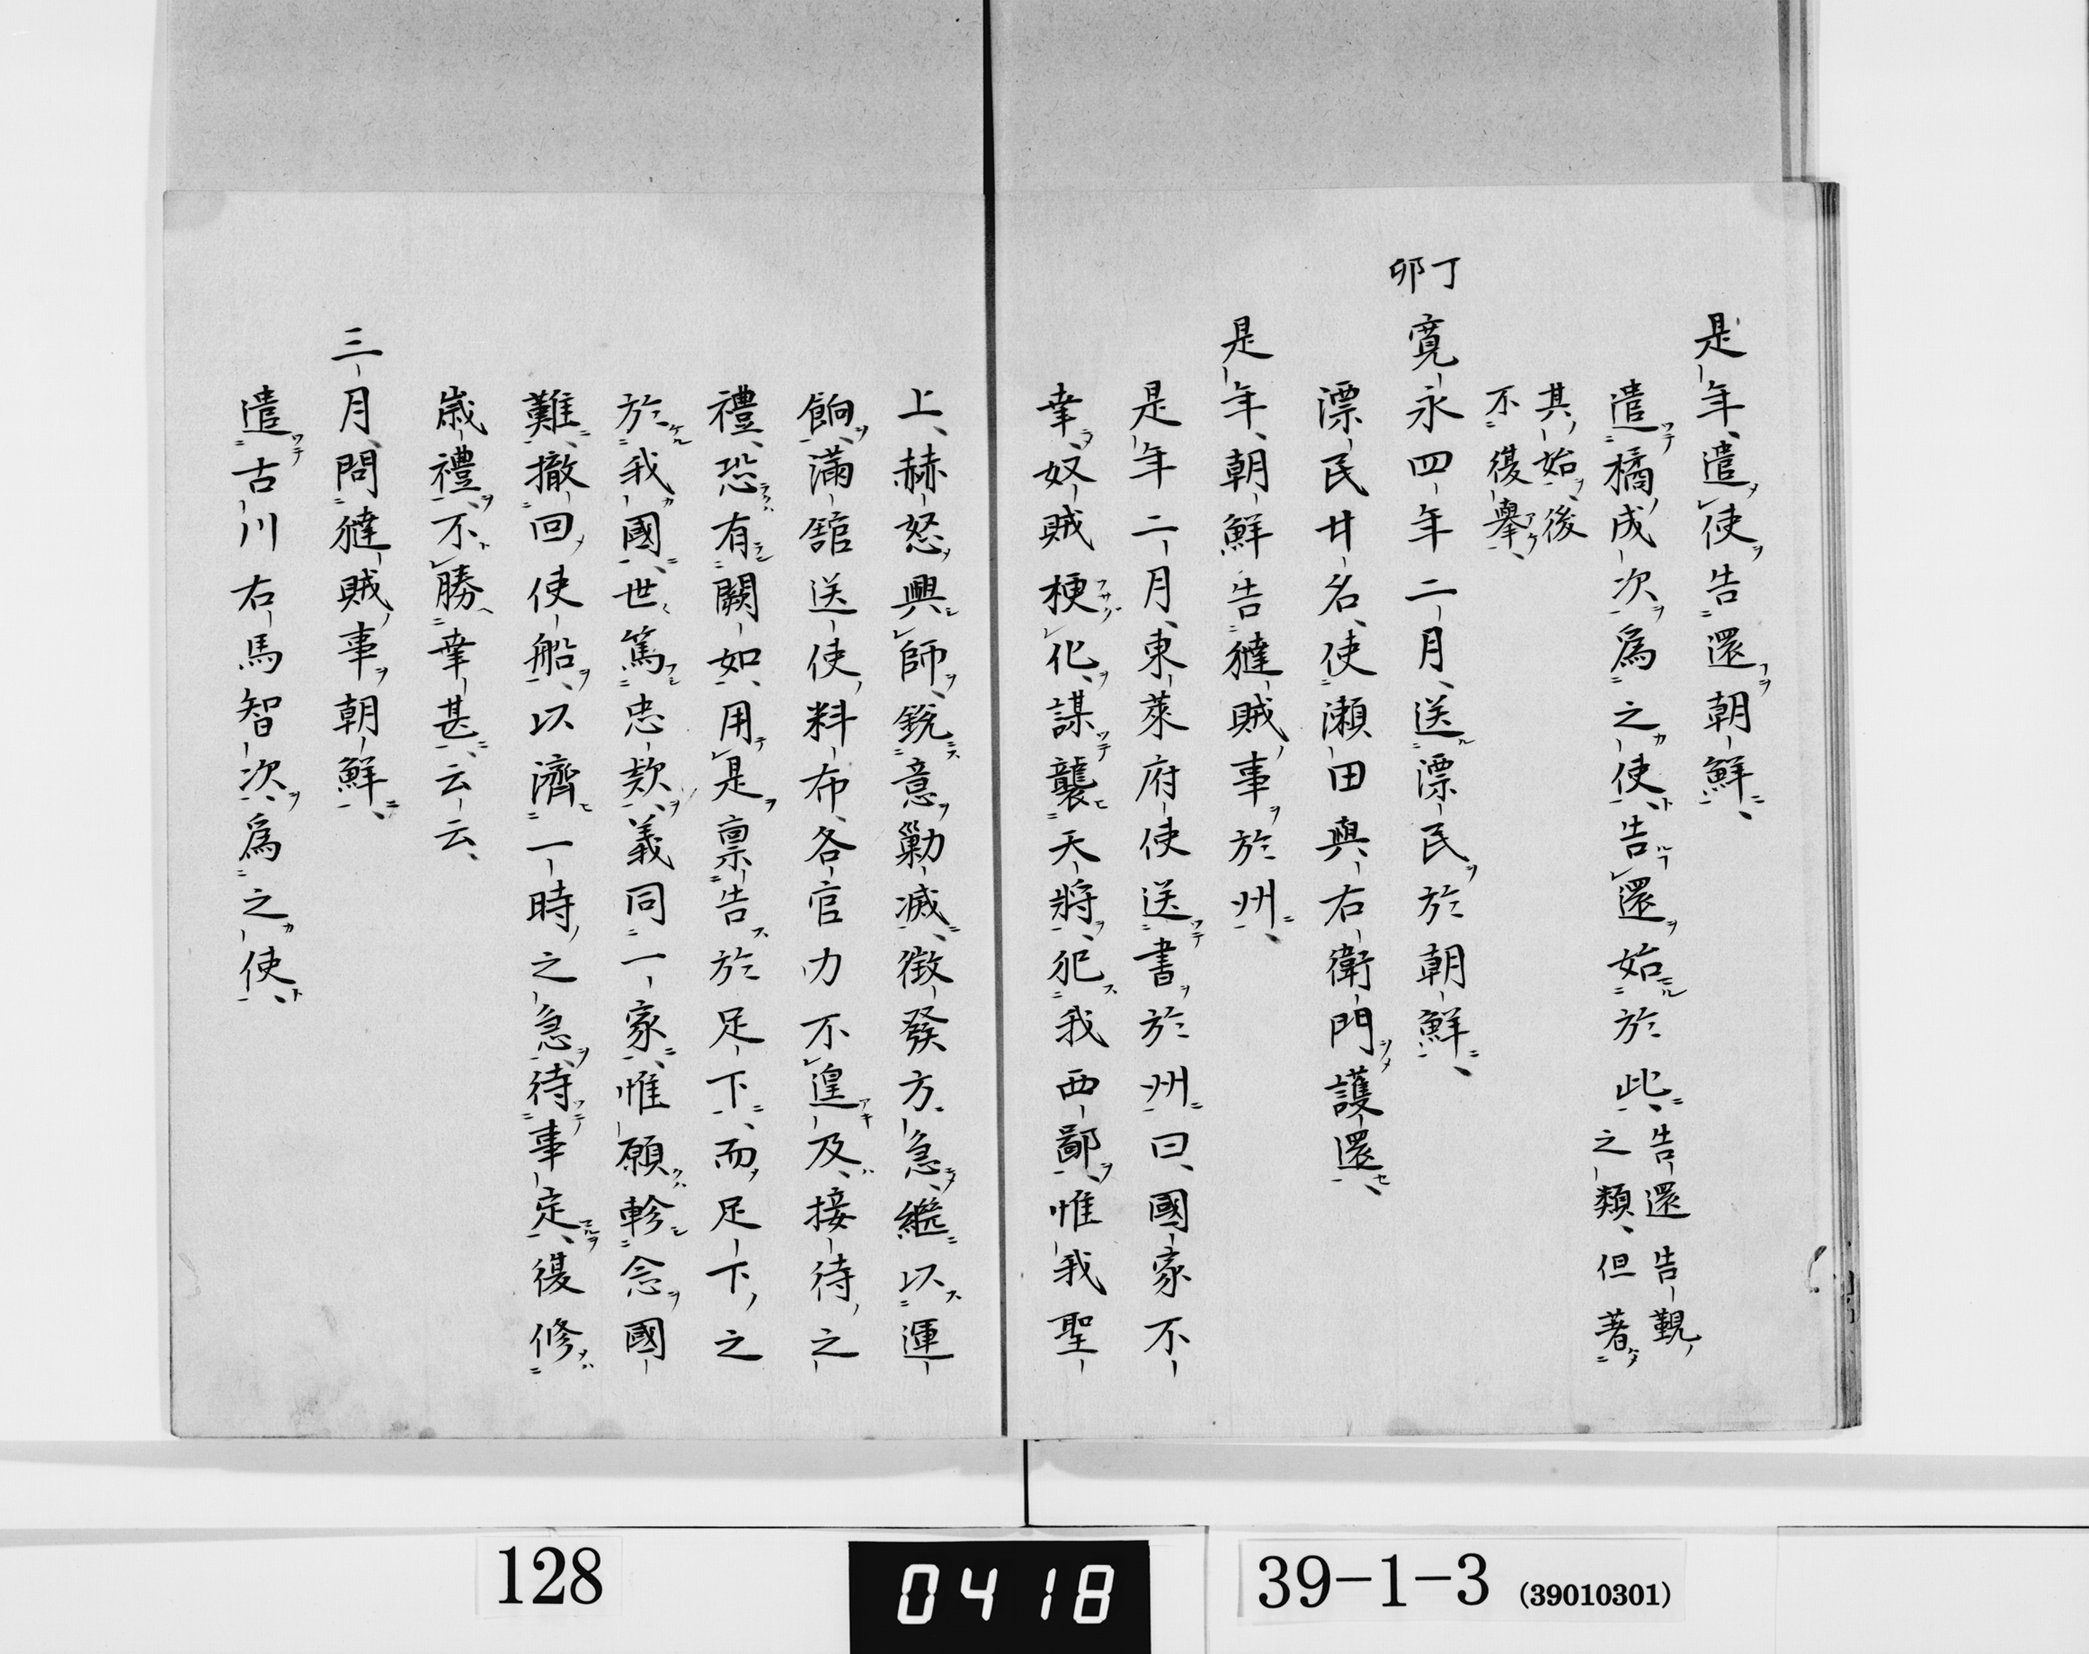 是年遣使告還朝鮮
遣橘成次爲之使告還始於此告還告覲
之類但著
其始後
不復擧
丁卯
寛永四年二月送漂民於朝鮮
漂民廿名使瀬田與右衛門護還
是年朝鮮告㺚賊事於州
是年二月東萊府使送書於州曰國家不
幸奴賊梗化謀襲天將犯我西鄙惟我聖
上赫怒興師鋭意勦滅徴發方急繼以運
餉滿舘送使料布各官力不遑及接待之
禮恐有闕如用是禀告於足下而足下之
於我國世篤忠款義同一家惟願軫念國
難撤回使船以濟一時之急待事定復修
歳禮不勝幸甚云云
三月問㺚賊事朝鮮
遣古川右馬智次爲之使
128
0418
39-1-3 (39010301)